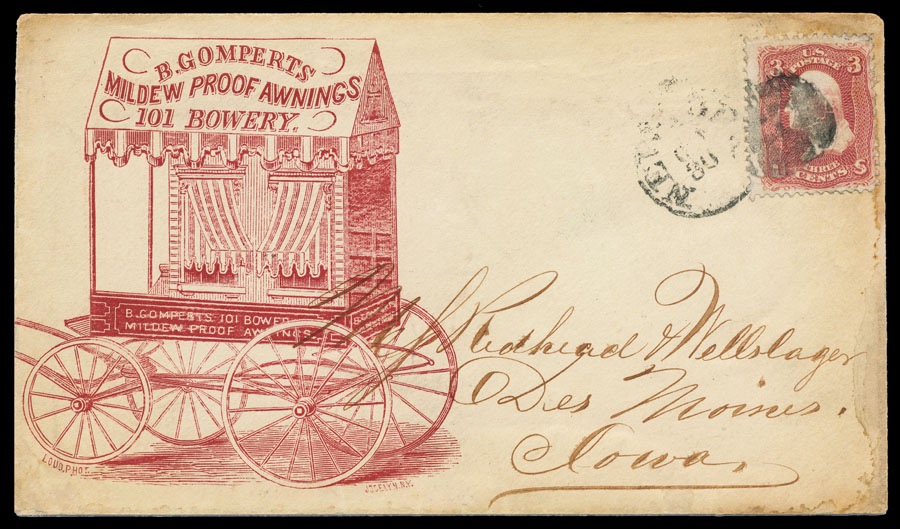 B. GOMPERTS
MILDEW PROOF AWNINGS
101 BOWERY.
B. GOMPERTS. 101 BOWER
MILDEW PROOF AWNINGS.
LOUD. PHOT.
JOCELYN. N.Y.
U.S.
POSTAGE
3 3
THREE
CENTS
U S
NEW
30
Redhead & Wellslager
Des Moines.
Iowa.